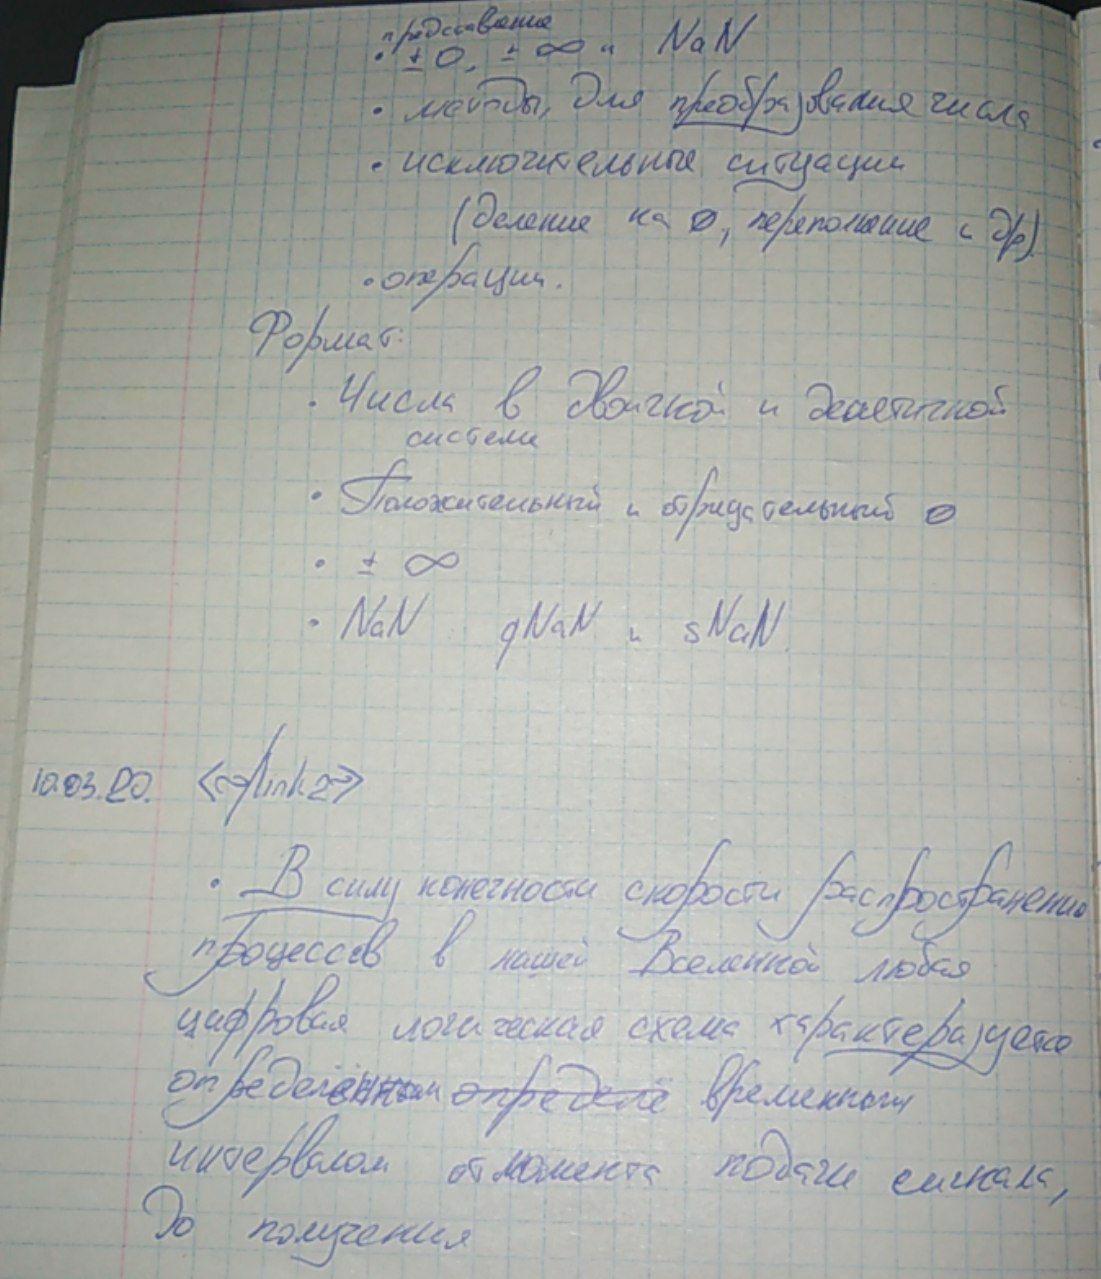 представление
• ±0, ±∞ и NaN
• методы, для преобразования числа
• исключительные ситуации
(деление на 0, переполнение и др)
• операции.
Формат:
• Числа в двоичной и десятичной
системе
• Положительный и отрицательный 0
• ± ∞
• NaN qNaN и sNaN.
10.03.20.
• В силу конечности скорости распространения
процессов в нашей Вселенной любая
цифровая логическая схема характеразуется
определённым определе временным
интервалом от момента подачи сигнала,
до получения